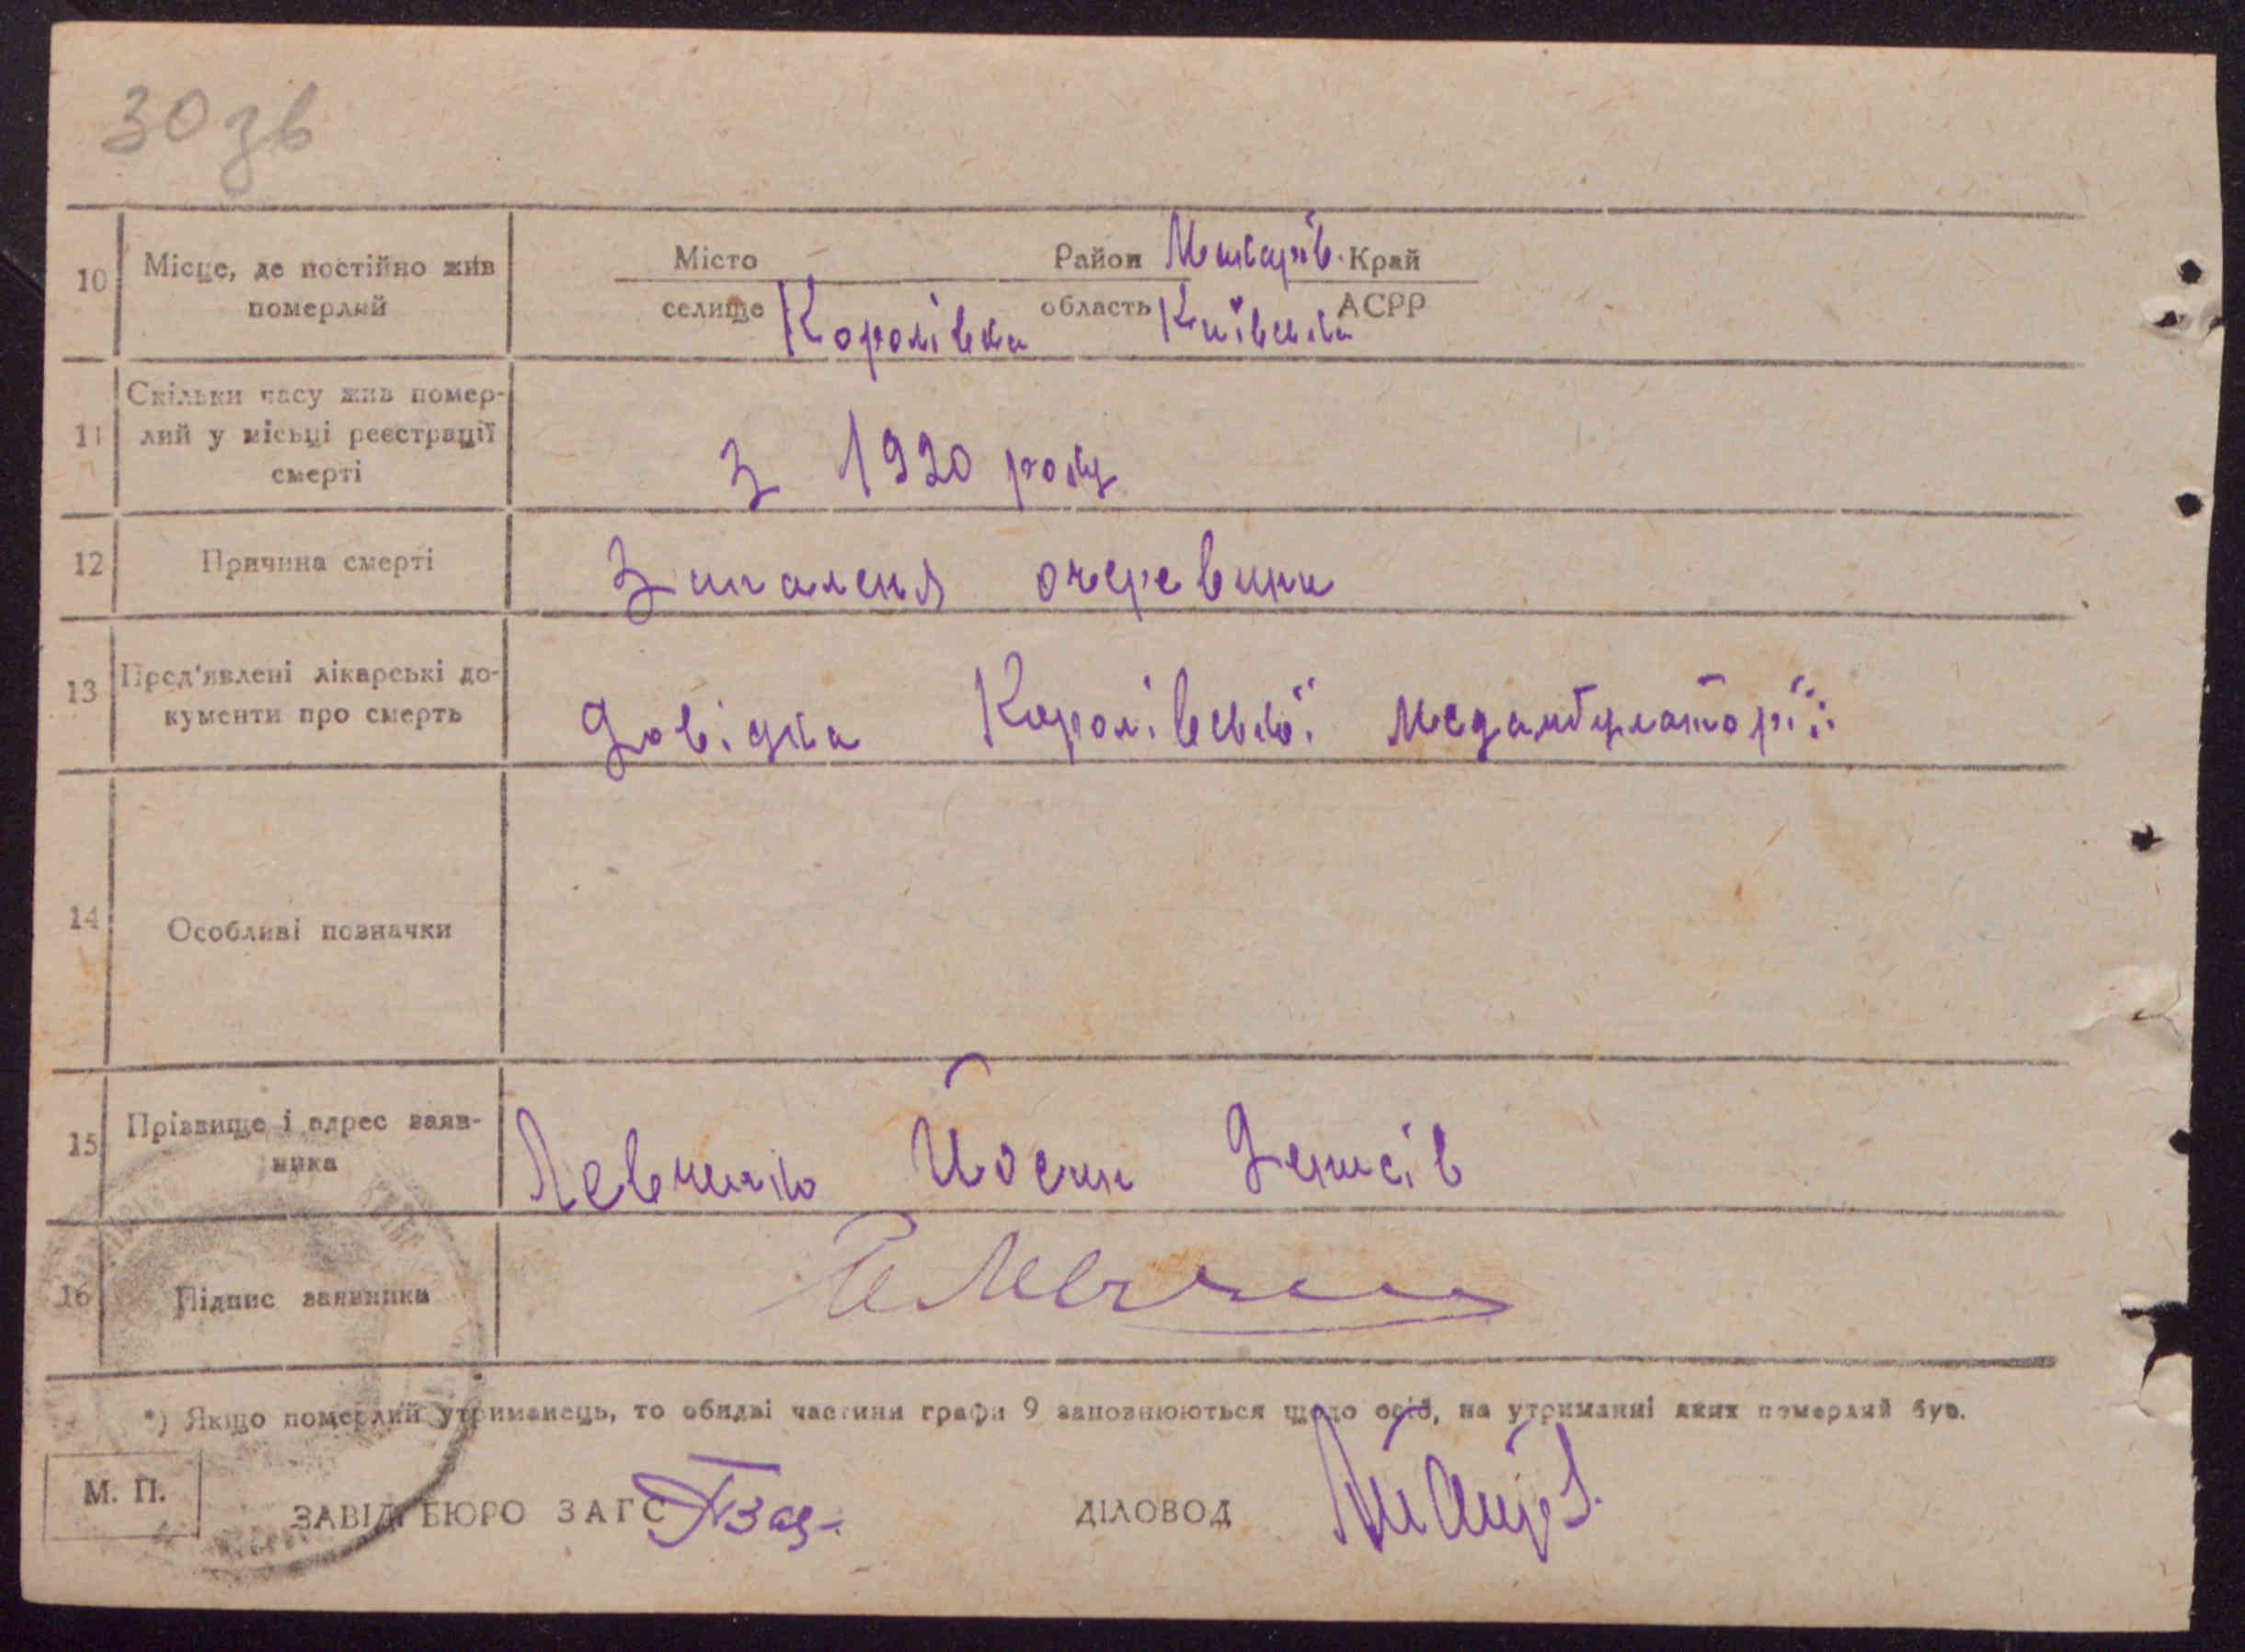 30 зв
10 Місце, де постійно жив
померлий
Місто — Район Макарів. Край
селище Королівка область Київська АСРР
11 Скільки часу жив помер-
лий у місьці реєстрації
смерті
З 1920 року
12 Причина смерті Запаленя очеревини
13 Пред'явлені лікарські до-
кументи про смерть
Довідка Королівської медамбулаторії
14 Особливі позначки
15 Прізвище і адрес заяв-
ника
Левченко Йосип Денисів
16 Підпис заявника
*) Якщо померлий утриманець, то обидві частини графи 9 заповнюються щодо осіб, на утриманні яких померлий був.
М. П.
ЗАВІД БЮРО ЗАГС ДІЛОВОД